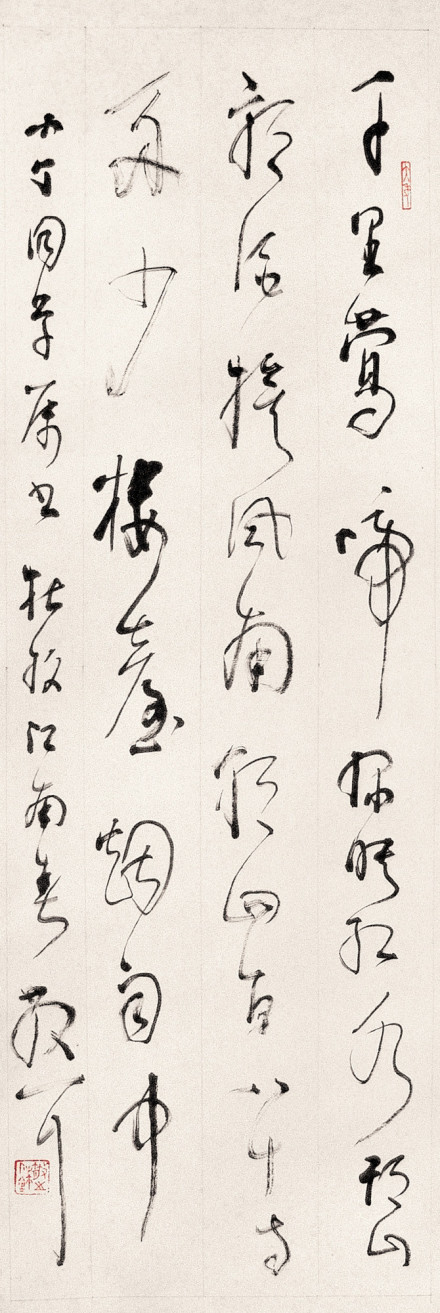 千里鶯啼綠映紅水村山
郭酒旗風南朝四百八十寺
多少樓臺煙雨中
同學屬書 杜牧江南春 散耳